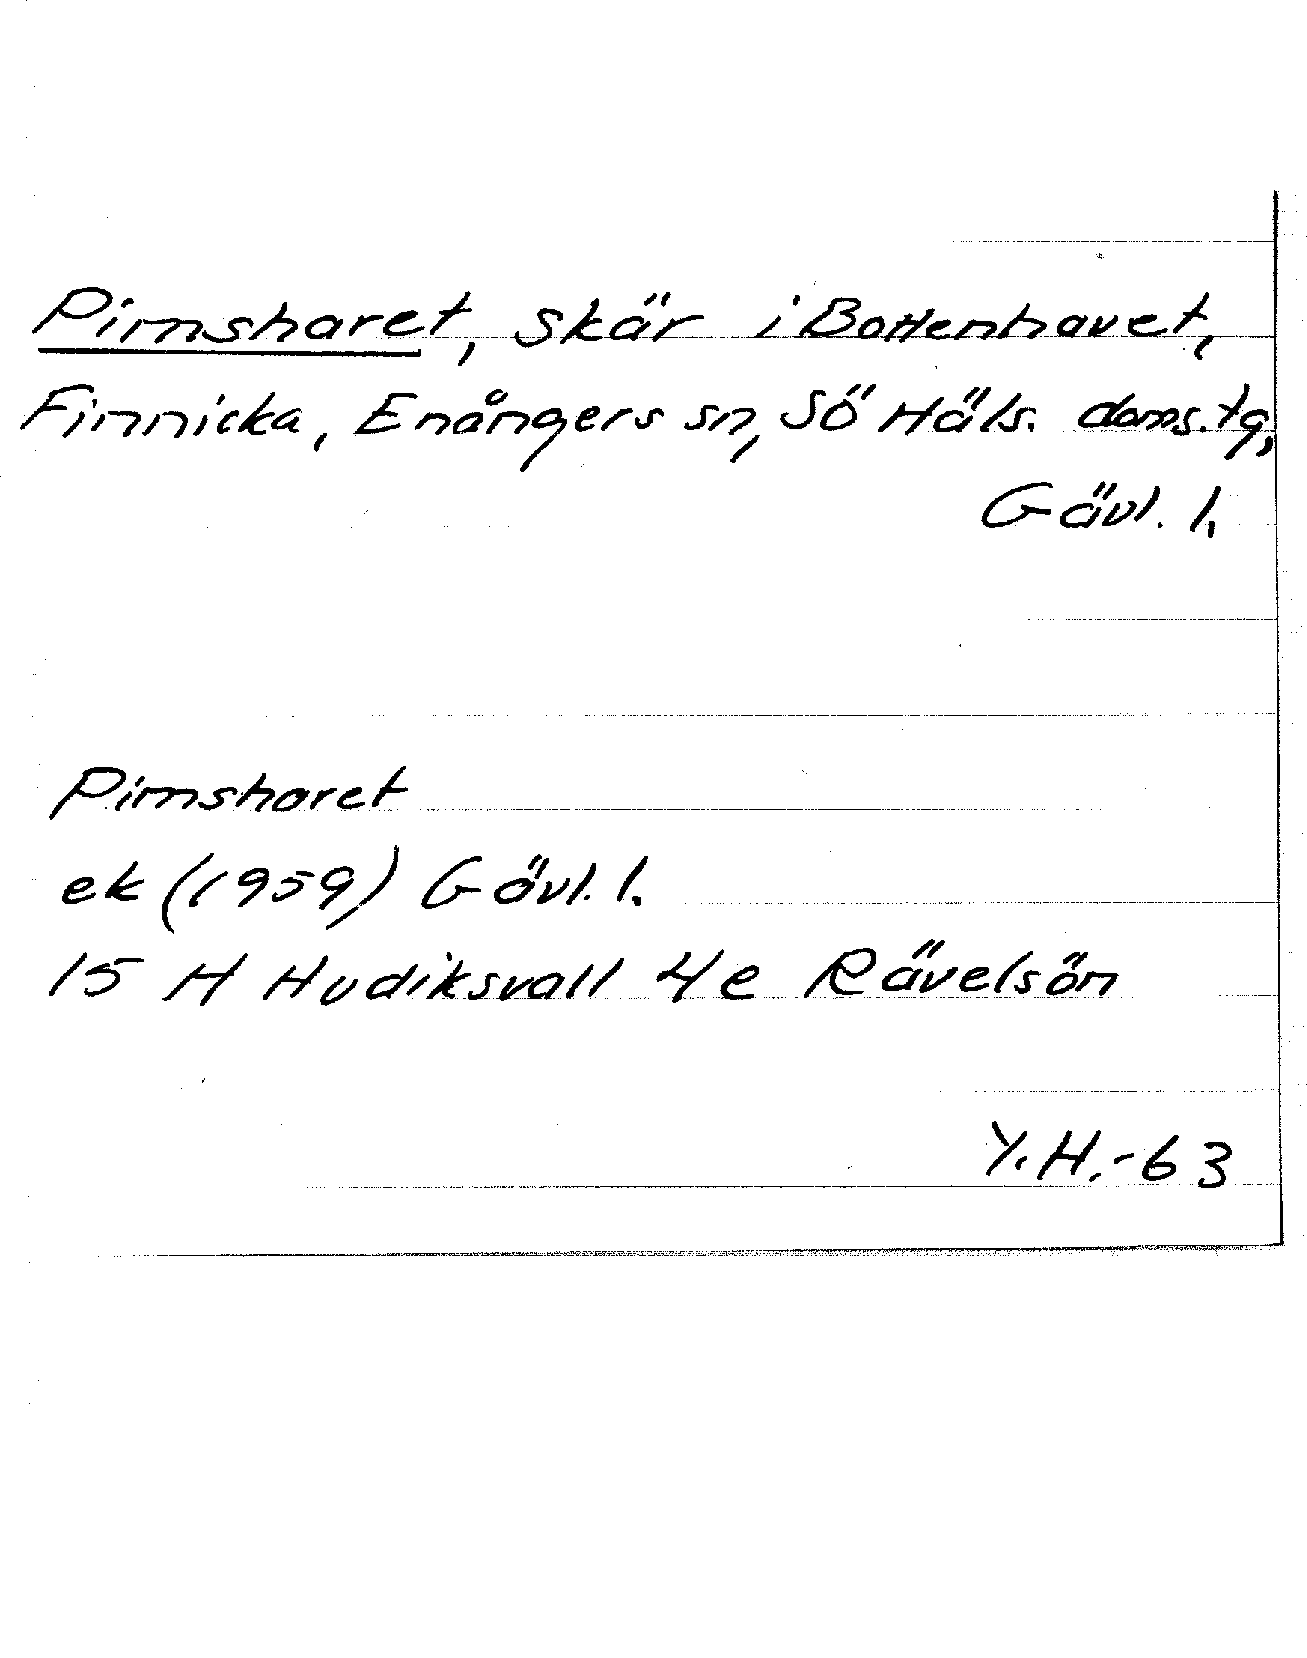 Pimsharet, skär i Bottenhavet,
Finnicka, Enångers sn, Sö Häls. doms.tg,
Gävl. l.
Pimsharet
ek (1959) Gävl. l.
15 H Hudiksvall 4 e Rävelsön
Y.H.-63